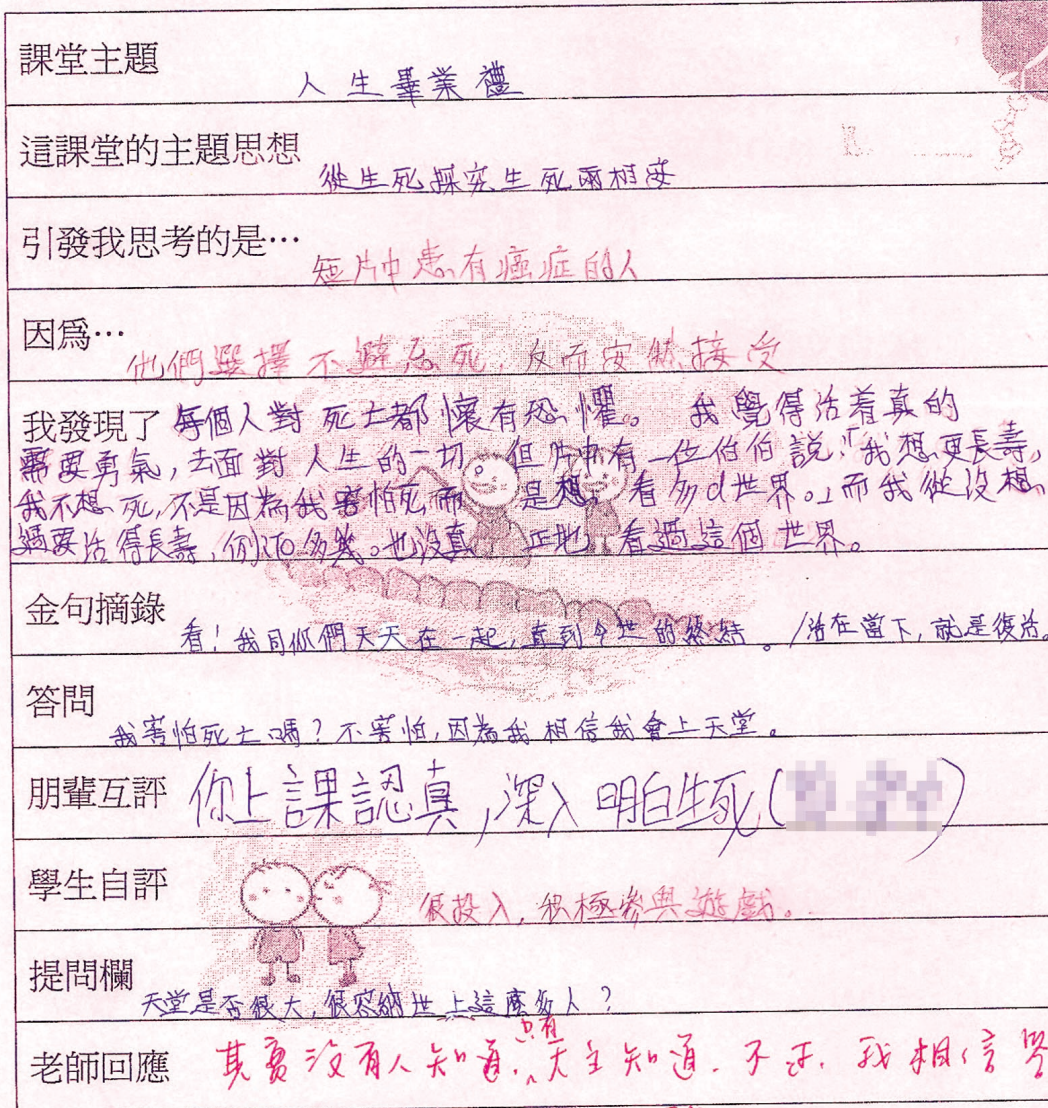 課堂主題 人生畢業禮
這課堂的主題思想 從生死探究生死兩相安
引發我思考的是… 短片中患有癌症的人
因為… 他們選擇不避忌死,反而安然接受
我發現了 每個人對死亡都懷有恐懼。 我覺得活着真的
需要勇氣,去面對人生的一切。但片中有一位伯伯說:「我想更長壽,
我不想死,不是因為我害怕死而是想看多d世界。」而我從沒想
過要活得長壽,例如多幾。也沒真正地看過這個世界。
金句摘錄 看!我同你們天天在一起,直到今世的終結。/活在當下,就是復活。
答問 我害怕死亡嗎?不害怕,因為我相信我會上天堂。
朋輩互評 你上課認真,深入明白生死(
學生自評 很投入,積極參與遊戲。
提問欄 天堂是否很大,很容納世上這麼多人?
老師回應 其實沒有人知道,只有天主知道. 不過, 我相信